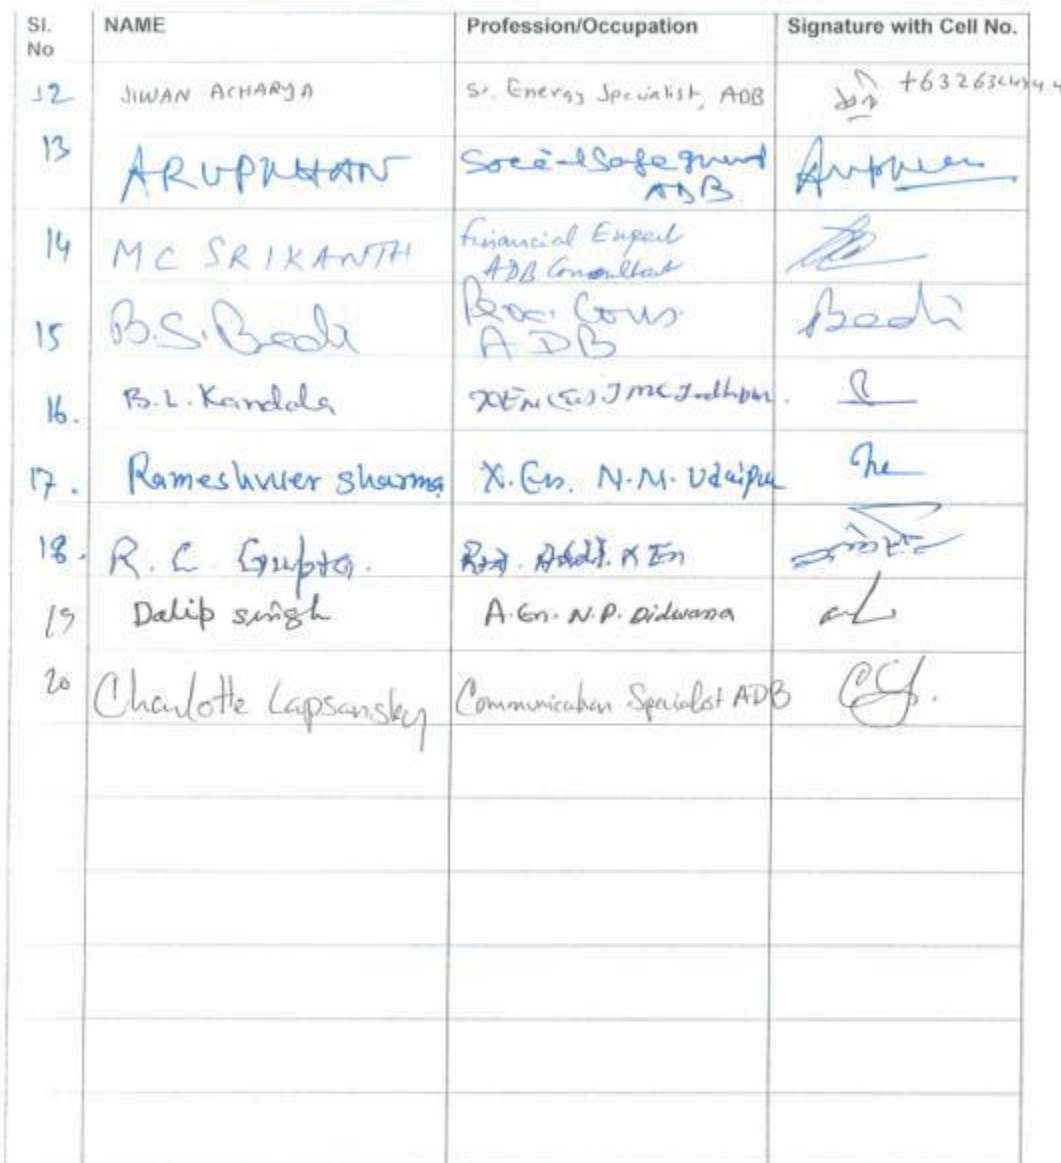 Sl. No NAME Profession/Occupation Signature with Cell No.
12 JIWAN ACHARYA Sr. Energy Specialist, ADB
13 ARUPKHAN Social Safeguard ADB
14 MC SRIKANTH Financial Expert ADB Consultant
15 B.S. Bedi Cons. ADB Bedi
16. B.L. Kandala XEN JMC Jodhpur.
17. Rameshwer sharma X.En. N.M. Udaipur
18. R. C. Gupta. Addl. X En
19 Dalip singh A.En. N.P. Didwana
20 Charlotte Lapsansky Communication Specialist ADB